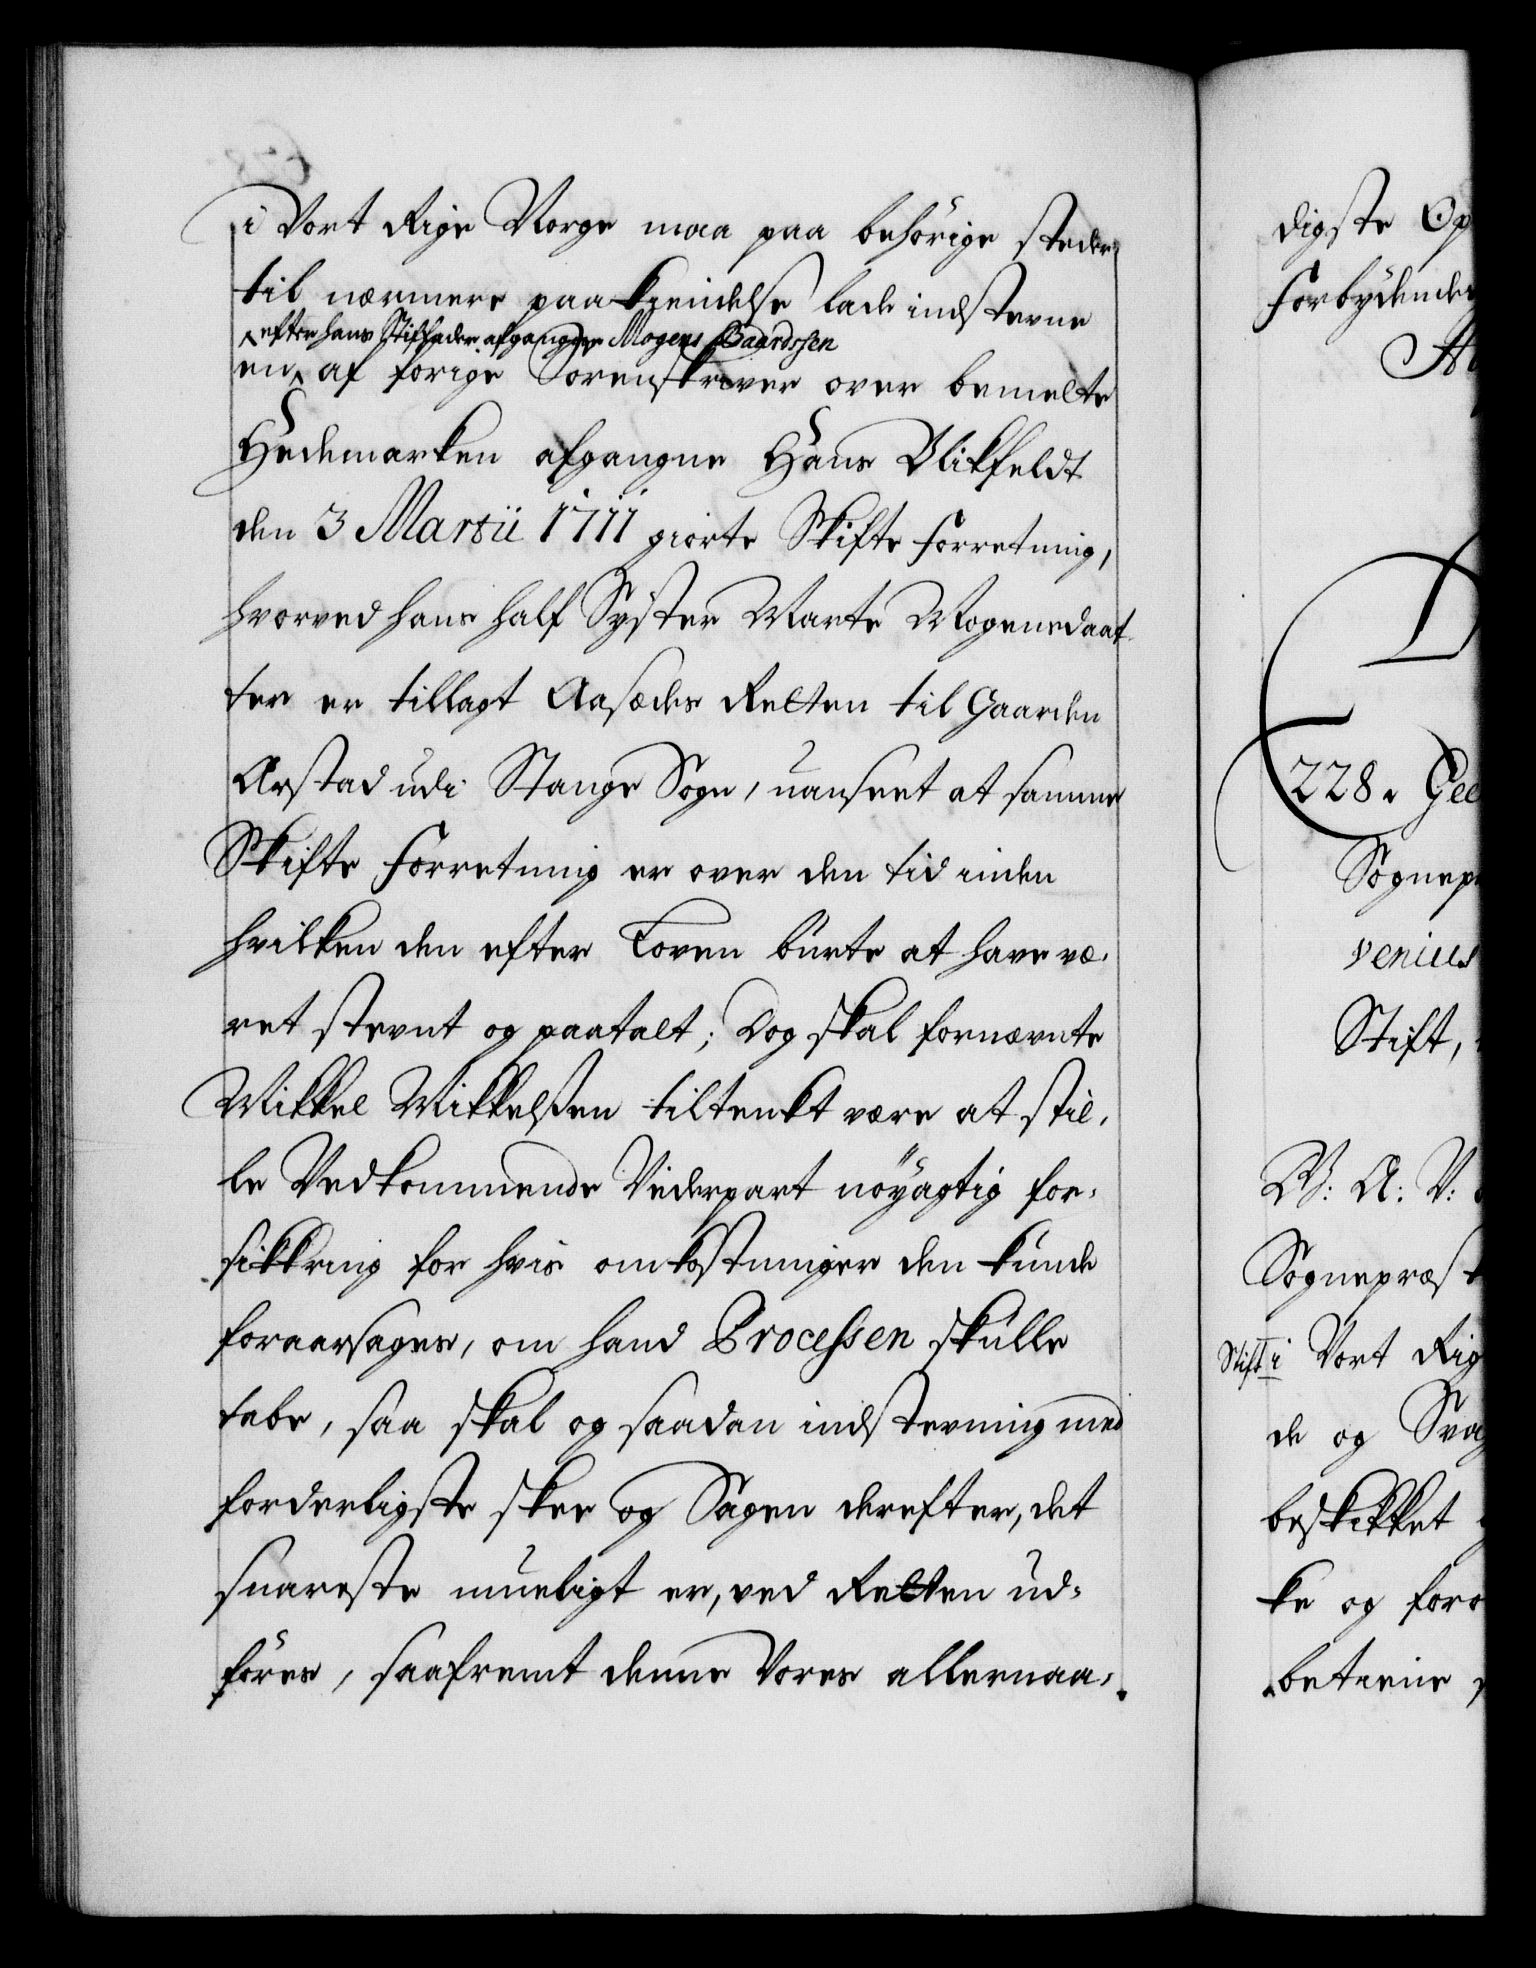 i Vort Rige Norge maa paa behörige steder
til nærmere paakiendelse lade indstevne
^ efter hans Stiffader afgangne Mogens Baardssen
en ^ af forige Sorenskriver over bemelte
Hedemarken afgangne Hans Blikfeldt
den 3 Martii 1711 giorte Skifte Forretning,
hvorved hans half Syster Marte Mogensdaat-
ter er tillagt Aasædes Retten til Gaarden
Arstad udi Stange Sogn, uanseet at samme
Skifte Forretning er over den tid inden
hvilken den efter Loven burte at have væ-
ret stevnt og paatalt; Dog skal fornævnte
Mikkel Mikkelsen tiltenkt være at stil-
le Vedkommende Vederpart nöyagtig for-
sikkring for hvis omkostninger den kunde
foraarsages, om hand Processen skulle
tabe, saa skal og saadan indstevning med
forderligste skee og Sagen derefter, det
snareste mueligt er, ved Retten ud-
föres, saafremt denne Vores allernaa-
digste Op
Forbydende
228. Gee
Sognepr
venius
Stift,
W: A: V:
Sognepræst
Stift i Vort Rig
de og Svag
beskikket
ke og foro
betiene